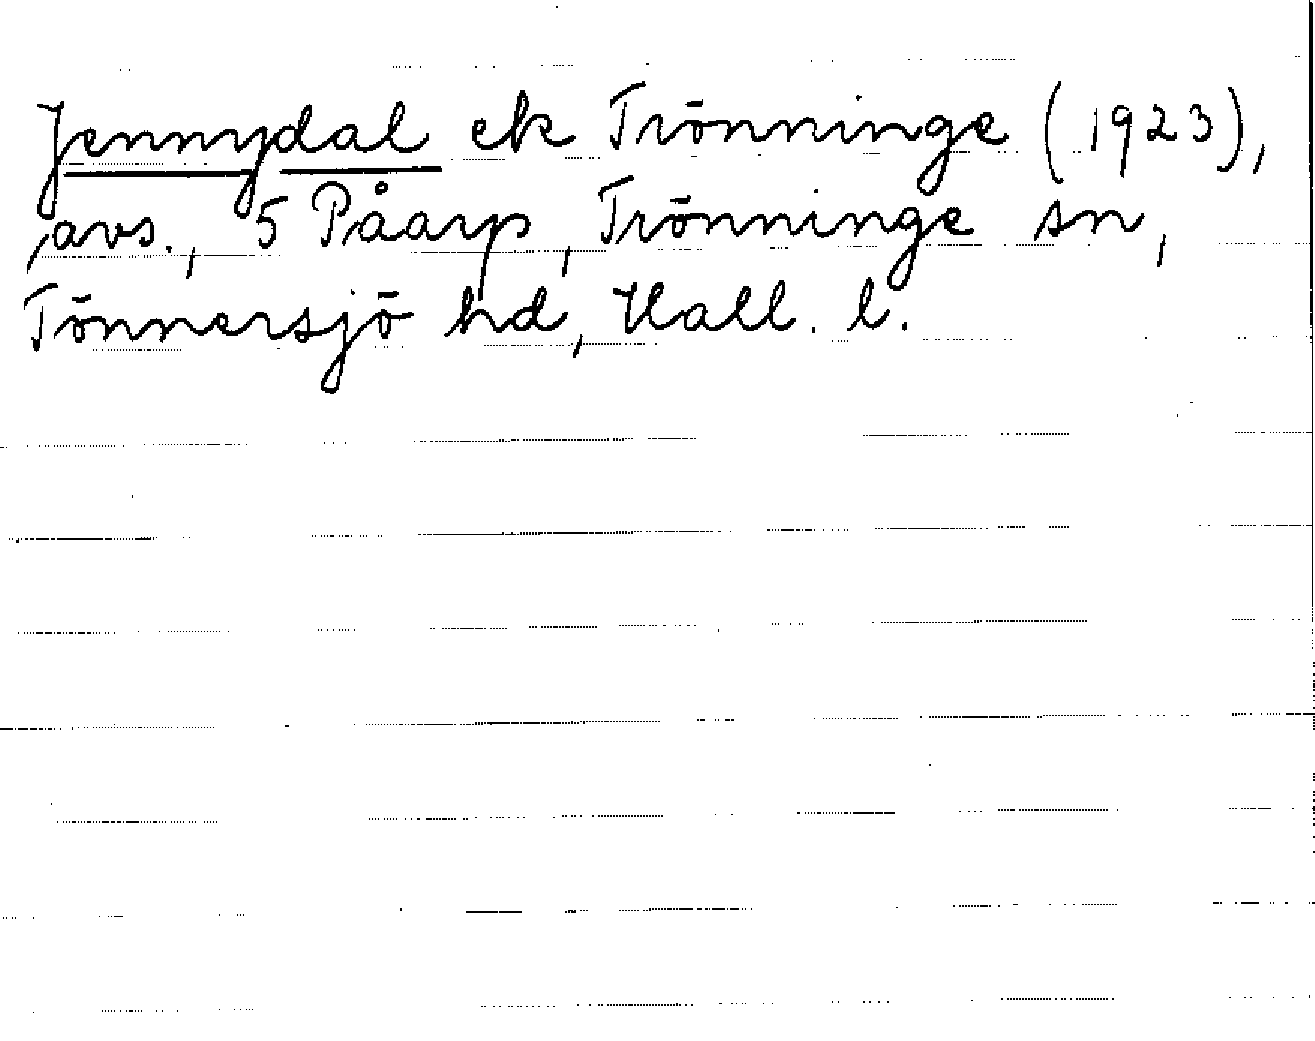 Jennydal ek Trönninge (1923),
avs., 5 Påarp, Trönninge sn,
Tönnersjö hd, Hall. l.